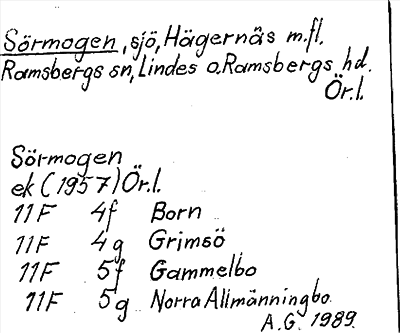 Sörmogen, sjö, Hägernäs m.fl.
Ramsbergs sn, Lindes o. Ramsbergs hd.
Ör.l.
Sörmogen
ek (1957) Ör.l.
11F 4f Born
11F 4g Grimsö
11F 5f Gammelbo
11F 5g Norra Allmänningbo
A.G. 1989.